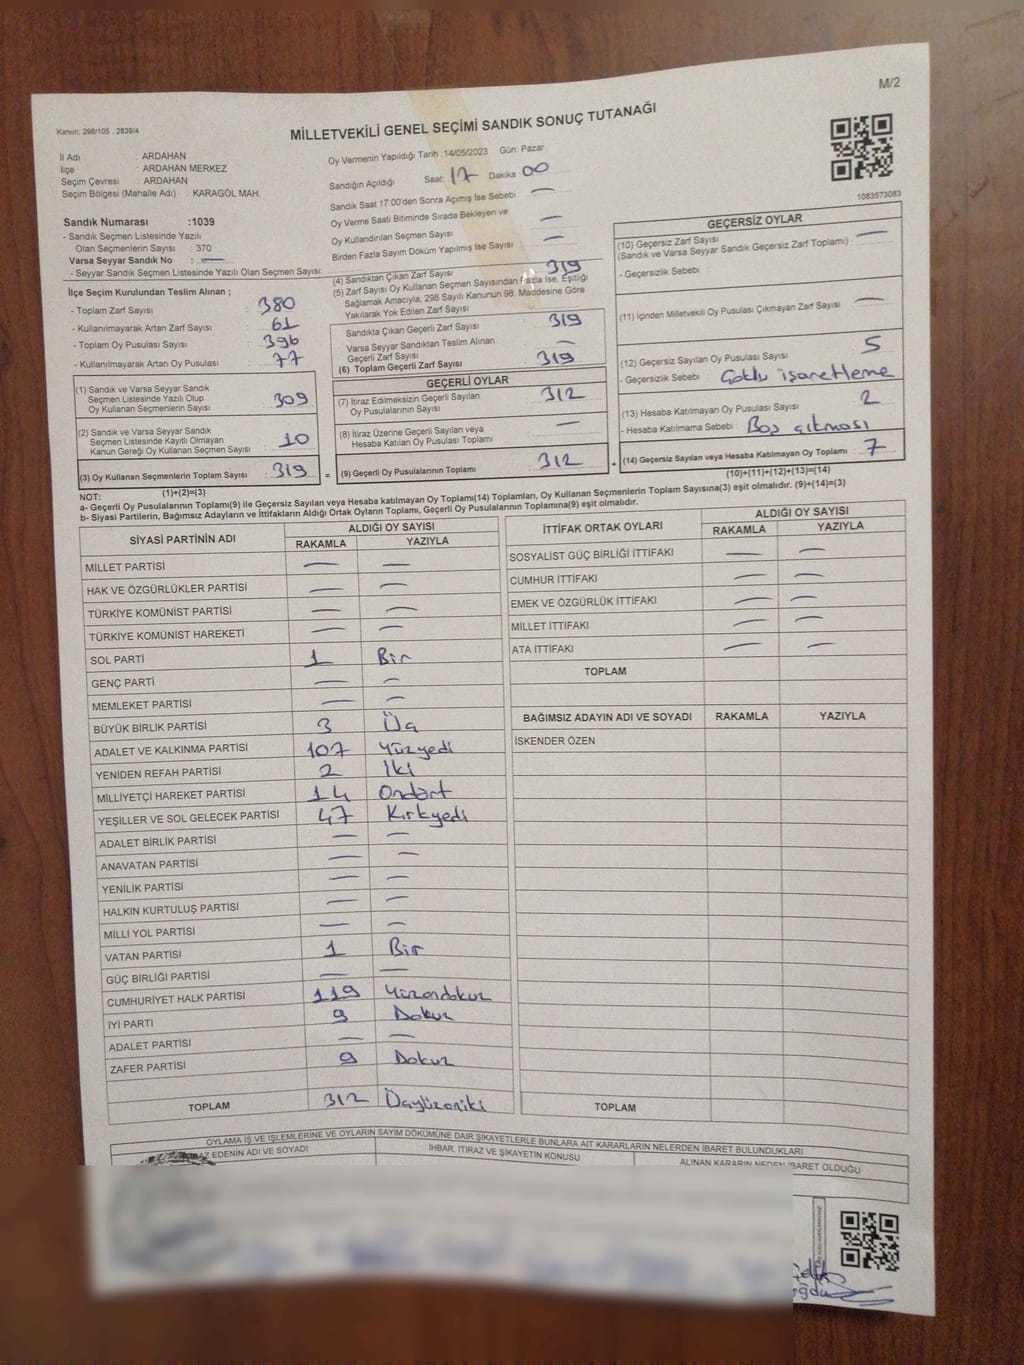 M/2
Kanun; 298/105 , 2839/4
MİLLETVEKİLİ GENEL SEÇİMİ SANDIK SONUÇ TUTANAĞI
İl Adı : ARDAHAN
İlçe : ARDAHAN MERKEZ
Seçim Çevresi : ARDAHAN
Seçim Bölgesi (Mahalle Adı) : KARAGÖL MAH.
Sandık Numarası :1039
- Sandık Seçmen Listesinde Yazılı
Olan Seçmenlerin Sayısı : 370
Varsa Seyyar Sandık No : —
- Seyyar Sandık Seçmen Listesinde Yazılı Olan Seçmen Sayısı:
İlçe Seçim Kurulundan Teslim Alınan ;
- Toplam Zarf Sayısı : 380
- Kullanılmayarak Artan Zarf Sayısı : 61
- Toplam Oy Pusulası Sayısı : 396
- Kullanılmayarak Artan Oy Pusulası : 77
(1) Sandık ve Varsa Seyyar Sandık
Seçmen Listesinde Yazılı Olup
Oy Kullanan Seçmenlerin Sayısı : 309
(2) Sandık ve Varsa Seyyar Sandık
Seçmen Listesinde Kayıtlı Olmayan
Kanun Gereği Oy Kullanan Seçmen Sayısı : 10
(3) Oy Kullanan Seçmenlerin Toplam Sayısı : 319
(1)+(2)=(3)
Oy Vermenin Yapıldığı Tarih :14/05/2023 Gün: Pazar
Sandığın Açıldığı Saat: 17 Dakika 00
Sandık Saat 17:00'den Sonra Açımış İse Sebebi : —
Oy Verme Saati Bitiminde Sırada Bekleyen ve
Oy Kullandırılan Seçmen Sayısı : —
Birden Fazla Sayım Döküm Yapılmış İse Sayısı : —
(4) Sandıktan Çıkan Zarf Sayısı : 319
(5) Zarf Sayısı Oy Kullanan Seçmen Sayısından Fazla İse, Eşitliği
Sağlamak Amacıyla, 298 Sayılı Kanunun 98. Maddesine Göre
Yakılarak Yok Edilen Zarf Sayısı :
Sandıkta Çıkan Geçerli Zarf Sayısı : 319
Varsa Seyyar Sandıktan Teslim Alınan
Geçerli Zarf Sayısı : —
(6) Toplam Geçerli Zarf Sayısı : 319
GEÇERLİ OYLAR
(7) İtiraz Edilmeksizin Geçerli Sayılan
Oy Pusulalarının Sayısı : 312
(8) İtiraz Üzerine Geçerli Sayılan veya
Hesaba Katılan Oy Pusulası Toplamı : —
= (9) Geçerli Oy Pusulalarının Toplamı : 312
1083573083
GEÇERSİZ OYLAR
(10) Geçersiz Zarf Sayısı : —
(Sandık ve Varsa Seyyar Sandık Geçersiz Zarf Toplamı)
- Geçersizlik Sebebi :
(11) İçinden Milletvekili Oy Pusulası Çıkmayan Zarf Sayısı : —
(12) Geçersiz Sayılan Oy Pusulası Sayısı : 5
- Geçersizlik Sebebi : Çoklu işaretleme
(13) Hesaba Katılmayan Oy Pusulası Sayısı : 2
- Hesaba Katılmama Sebebi : Boş çıkması
+ (14) Geçersiz Sayılan veya Hesaba Katılmayan Oy Toplamı : 7
(10)+(11)+(12)+(13)=(14)
NOT:
a- Geçerli Oy Pusulalarının Toplamı(9) ile Geçersiz Sayılan veya Hesaba katılmayan Oy Toplamı(14) Toplamları, Oy Kullanan Seçmenlerin Toplam Sayısına(3) eşit olmalıdır. (9)+(14)=(3)
b- Siyasi Partilerin, Bağımsız Adayların ve İttifakların Aldığı Ortak Oyların Toplamı, Geçerli Oy Pusulalarının Toplamına(9) eşit olmalıdır.
SİYASİ PARTİNİN ADI ALDIĞI OY SAYISI
RAKAMLA YAZIYLA
MİLLET PARTİSİ — —
HAK VE ÖZGÜRLÜKLER PARTİSİ — —
TÜRKİYE KOMÜNİST PARTİSİ — —
TÜRKİYE KOMÜNİST HAREKETİ — —
SOL PARTİ 1 Bir
GENÇ PARTİ — —
MEMLEKET PARTİSİ — —
BÜYÜK BİRLİK PARTİSİ 3 Üç
ADALET VE KALKINMA PARTİSİ 107 Yüzyedi
YENİDEN REFAH PARTİSİ 2 İki
MİLLİYETÇİ HAREKET PARTİSİ 14 Ondört
YEŞİLLER VE SOL GELECEK PARTİSİ 47 Kırkyedi
ADALET BİRLİK PARTİSİ — —
ANAVATAN PARTİSİ — —
YENİLİK PARTİSİ — —
HALKIN KURTULUŞ PARTİSİ — —
MİLLİ YOL PARTİSİ — —
VATAN PARTİSİ 1 Bir
GÜÇ BİRLİĞİ PARTİSİ — —
CUMHURİYET HALK PARTİSİ 119 Yüzondokuz
İYİ PARTİ 9 Dokuz
ADALET PARTİSİ — —
ZAFER PARTİSİ 9 Dokuz
TOPLAM 312 Üçyüzoniki
İTTİFAK ORTAK OYLARI ALDIĞI OY SAYISI
RAKAMLA YAZIYLA
SOSYALİST GÜÇ BİRLİĞİ İTTİFAKI — —
CUMHUR İTTİFAKI — —
EMEK VE ÖZGÜRLÜK İTTİFAKI — —
MİLLET İTTİFAKI — —
ATA İTTİFAKI — —
TOPLAM
BAĞIMSIZ ADAYIN ADI VE SOYADI RAKAMLA YAZIYLA
İSKENDER ÖZEN
TOPLAM
OYLAMA İŞ VE İŞLEMLERİNE VE OYLARIN SAYIM DÖKÜMÜNE DAİR ŞİKAYETLERLE BUNLARA AİT KARARLARIN NELERDEN İBARET BULUNDUKLARI
EDENİN ADI VE SOYADI İHBAR, İTİRAZ VE ŞİKAYETİN KONUSU ALINAN KARARIN NEDEN İBARET OLDUĞU